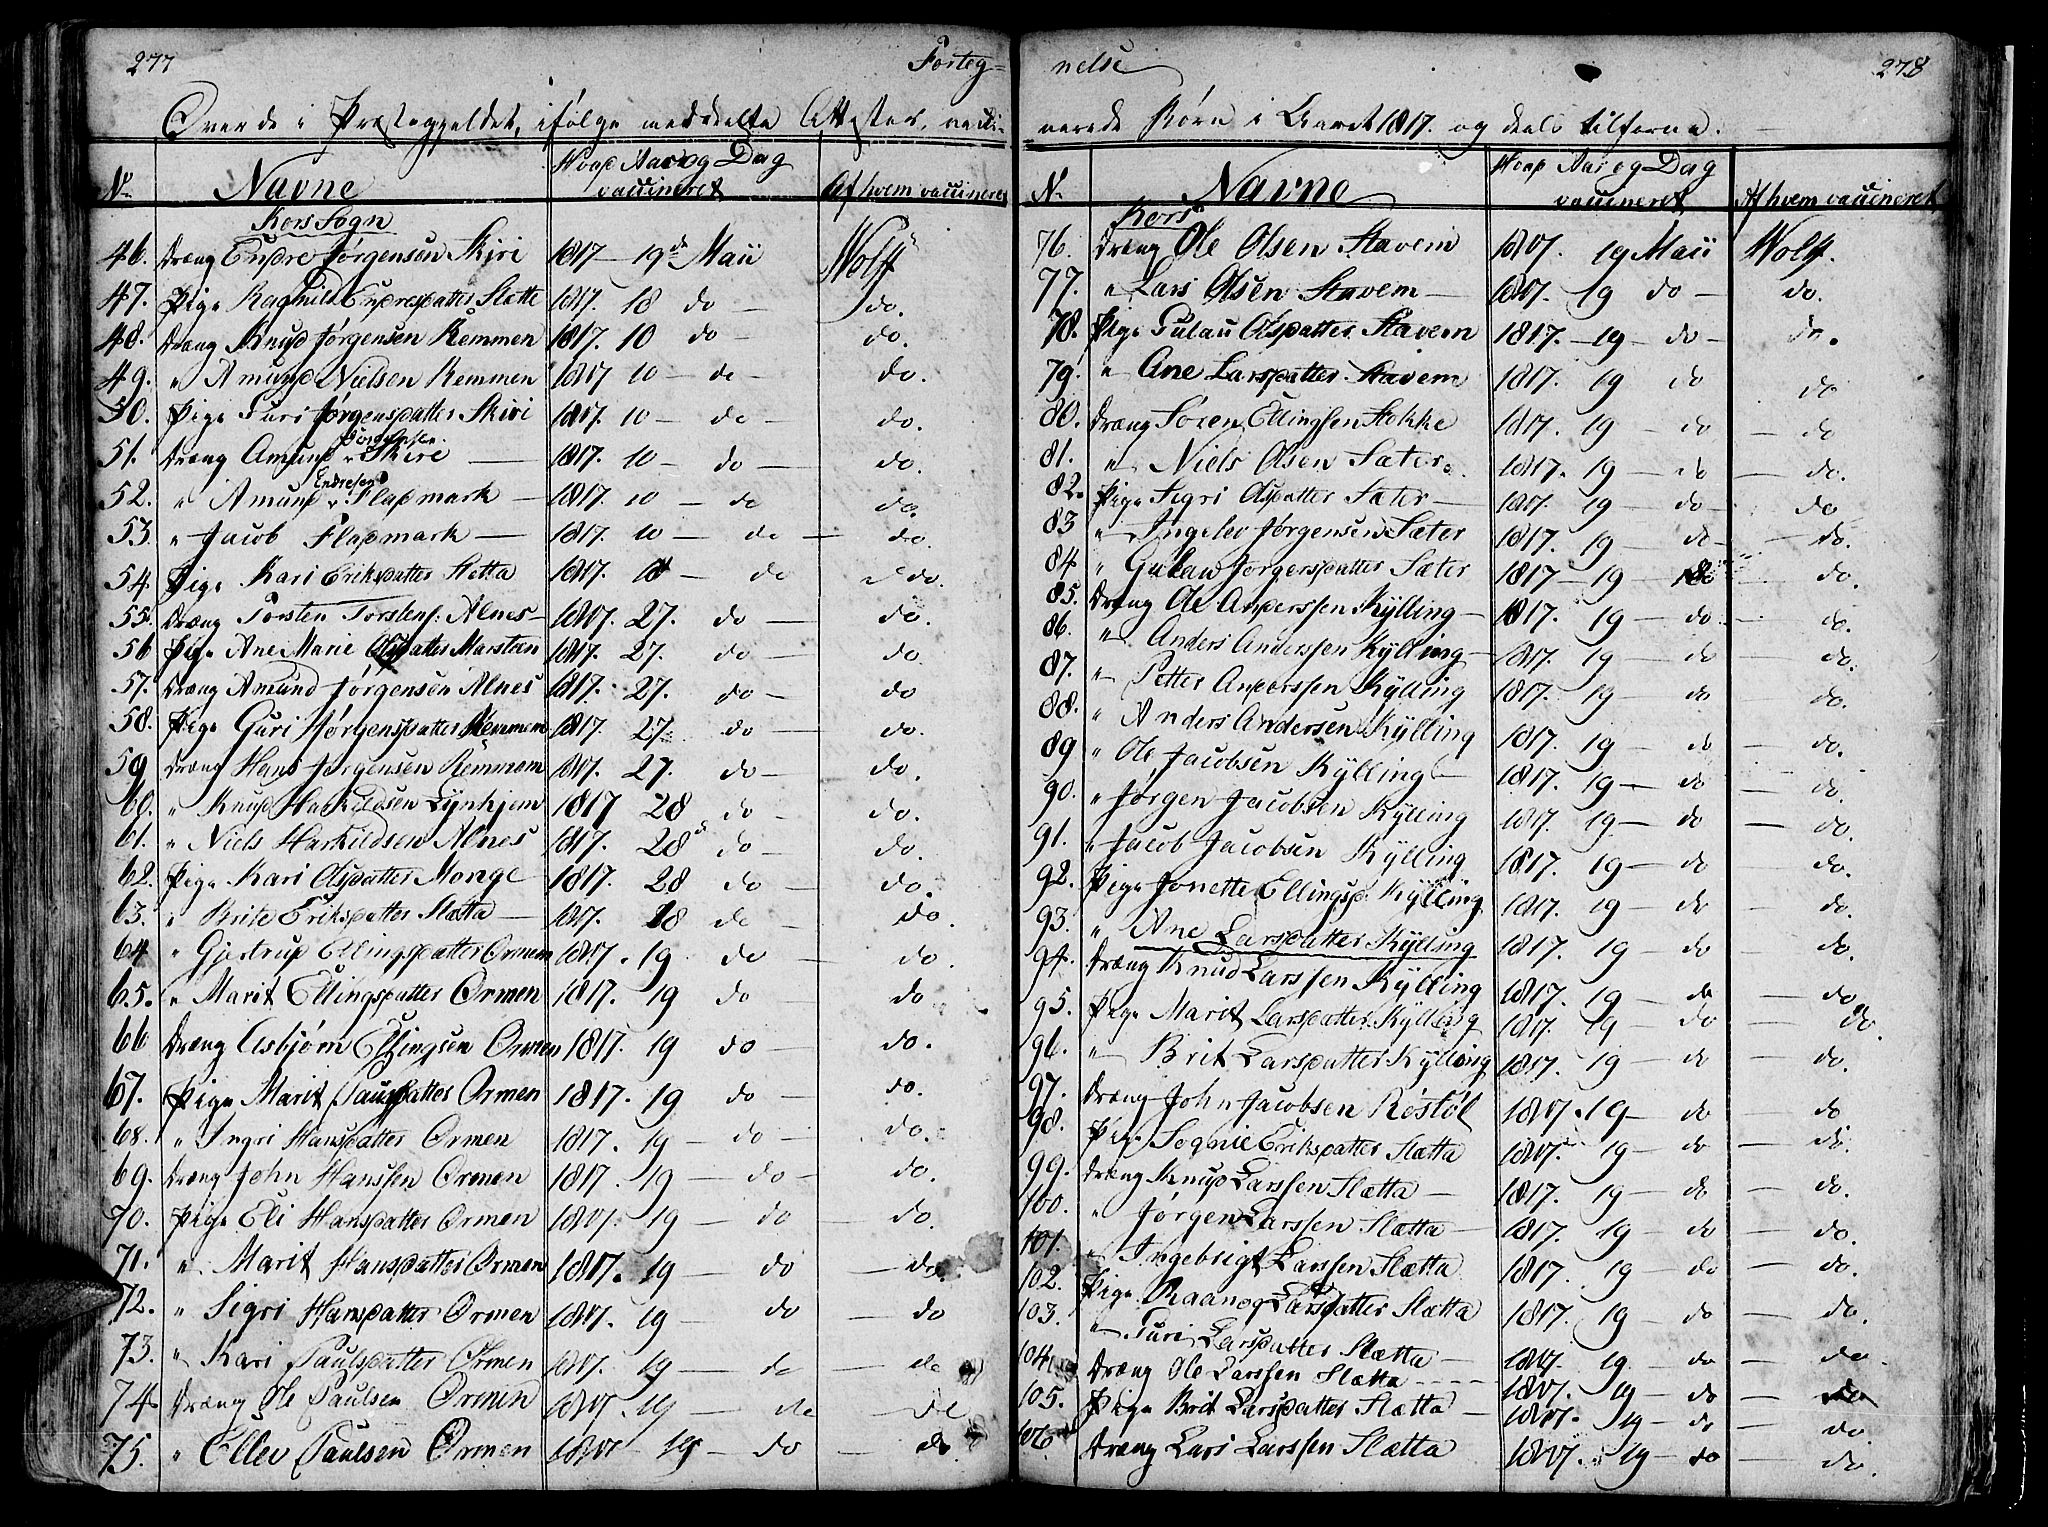 277
Forteg=
Over de i Præstegjeldet, ifølge meddeelte Attester, vacci-
No Navne Hvad Aar og Dag vaccineret Af hvem vaccineret
Kors Sogn
46. Dræng Endre Jørgensen Skiri 1817 — 19de Maii Wolff
47. Pige Ragnild Endresdatter Slette 1817. 18 do — do.
48. Dræng Knud Jørgensen Remmen 1817. 10 do — do.
49. " Amund Nielsen Remmen 1817 10 — do — do.
50. Pige Guri Jørgensdatter Skiri 1817. 10 — do — do.
51. Dræng Amund Jørgensen Skiri — 1817. 10 — do — do.
52. " Amund Endresen Fladmark — 1817. 10 — do do.
53. " Jacob Fladmark — 1817. 10 — do — do.
54. Pige Kari Eriksdatter Sletta 1817. — do do.
55. Dræng Torsten Torstens: Alnes — 1817. 27. do — do.
56 Pige Ane Marie Olsdatter Marstæn 1817. 27. do — do.
57. Dræng Amund Jørgensen Alnes 1817. 27. do — do
58. Pige Guri Jørgensdatter Remmem 1817. 27. do — do.
59 Dræng Hans Jørgensen Remmem 1817. 27. do — do.
60. " Knud Harkildsen Lynhjem 1817 28 do — do.
61. " Niels Harkildsen Alnes 1817. 28 do — do.
62. Pige Kari Olsdatter Monge 1817. 28 do — do.
63. " Brite Eriksdatter Slætta — 1817. 28 do — do
64 " Gjertrud Ellingsdatter Ormem 1817. 19 do — do.
65. " Marit Ellingsdatter Ormen 1817. 19 do — do
66 Dræng Asbjørn Ellingsen Ormen 1817. 19 do — do.
67. Pige Marit Paulsdatter Ormen 1817. 19 do — do.
68. " Ingri Hansdatter Ormen 1817. 19 — do — do.
69. Dræng John Hanssen Ormen 1817. 19 — do — do.
70. Pige Eli Hansdatter Ormen 1817. 19 — do — do.
71. " Marit Hansdatter Ormen 1817. 19 — do — do.
72. " Sigri Hansdatter Ormen 1817. 19 — do — do
73. " Kari Paulsdatter Ormen 1817. 19 — do — do
74. Dræng Ole Paulsen Ormen 1817. 19 — do — do
75. " Ellev Paulsen Ormen 1817 — 19 — do — do
278
nelse
nerede Børn i Aaret 1817. og deels tilforne.
No Navne Hvad Aar og Dag vaccineret Af hvem vaccineret
Kors
76. Dræng Ole Olsen Stavem 1817. 19 Maii Wolff.
77. " Lars Olsen Stavem — 1817. 19 do — do.
78. Pige Gulau Olsdatter Stavem 1817. — 19 — do — do.
79. " Ane Larsdatter Stavem 1817. 19 do do
80. Dræng Søren Ellingsen Stokke 1817. 19 — do — do
81. " Niels Olsen Sæter. 1817. 19 — do — do.
82. Pige Sigri Olsdatter Sæter — 1817. 19 — do — do
83 " Ingelev Jørgensen Sæter 1817. 19 — do — do.
84 " Gulau Jørgensdatter Sæter 1817 — 19 — do — do.
85. Dræng Ole Anderssen Kylling — 1817. 19 — do — do.
86. " Anders Anderssen Kylling — 1817. 19 — do — do.
87. " Petter Anderssen Kylling 1817. 19 — do — do.
88. " Anders Andersen Kylling 1817. 19 — do — do.
89 " Ole Jacobsen Kylling — 1817. 19 — do — do.
90. " Jørgen Jacobsen Kylling 1817. 19 — do — do.
91. " Jacob Jacobsen Kylling 1817. 19 — do — do.
92. Pige Jonette Ellingsd. Kylling 1817. 19 — do — do.
93. " Ane Larsdatter Kylling 1817. 19 — do — do.
94. Dræng Knud Larssen Kylling 1817. 19 — do — do
95. Pige Marit Larsdatter Kylling 1817. 19 — do — do.
96. " Brit Larsdatter Kylling 1817. 19 — do — do.
97. Dræng John Jacobsen Røstøl 1817. 19 — do — do
98. Pige Sognie Eriksdatter Slætta 1817. 19 — do — do.
99. Dræng Knud Larssen Slætta — 1817. 19 — do — do.
100. " Jørgen Larssen Slætta — 1817. 19 — do — do.
101. " Ingebrigt Larssen Slætta 1817. 19 — do — do.
102. Pige Raanog Larsdatter Slætta 1817. 19 — do — do.
103. " Guri Larsdatter Slætta — 1817. 19. — do — do.
104. Dræng Ole Larssen Slætta 1817. 19 — do — do
105. Pige Brit Larsdatter Slætta — 1817. 19 — do — do.
106 Dræng Lars Larssen Slætta 1817. 19 — do — do.